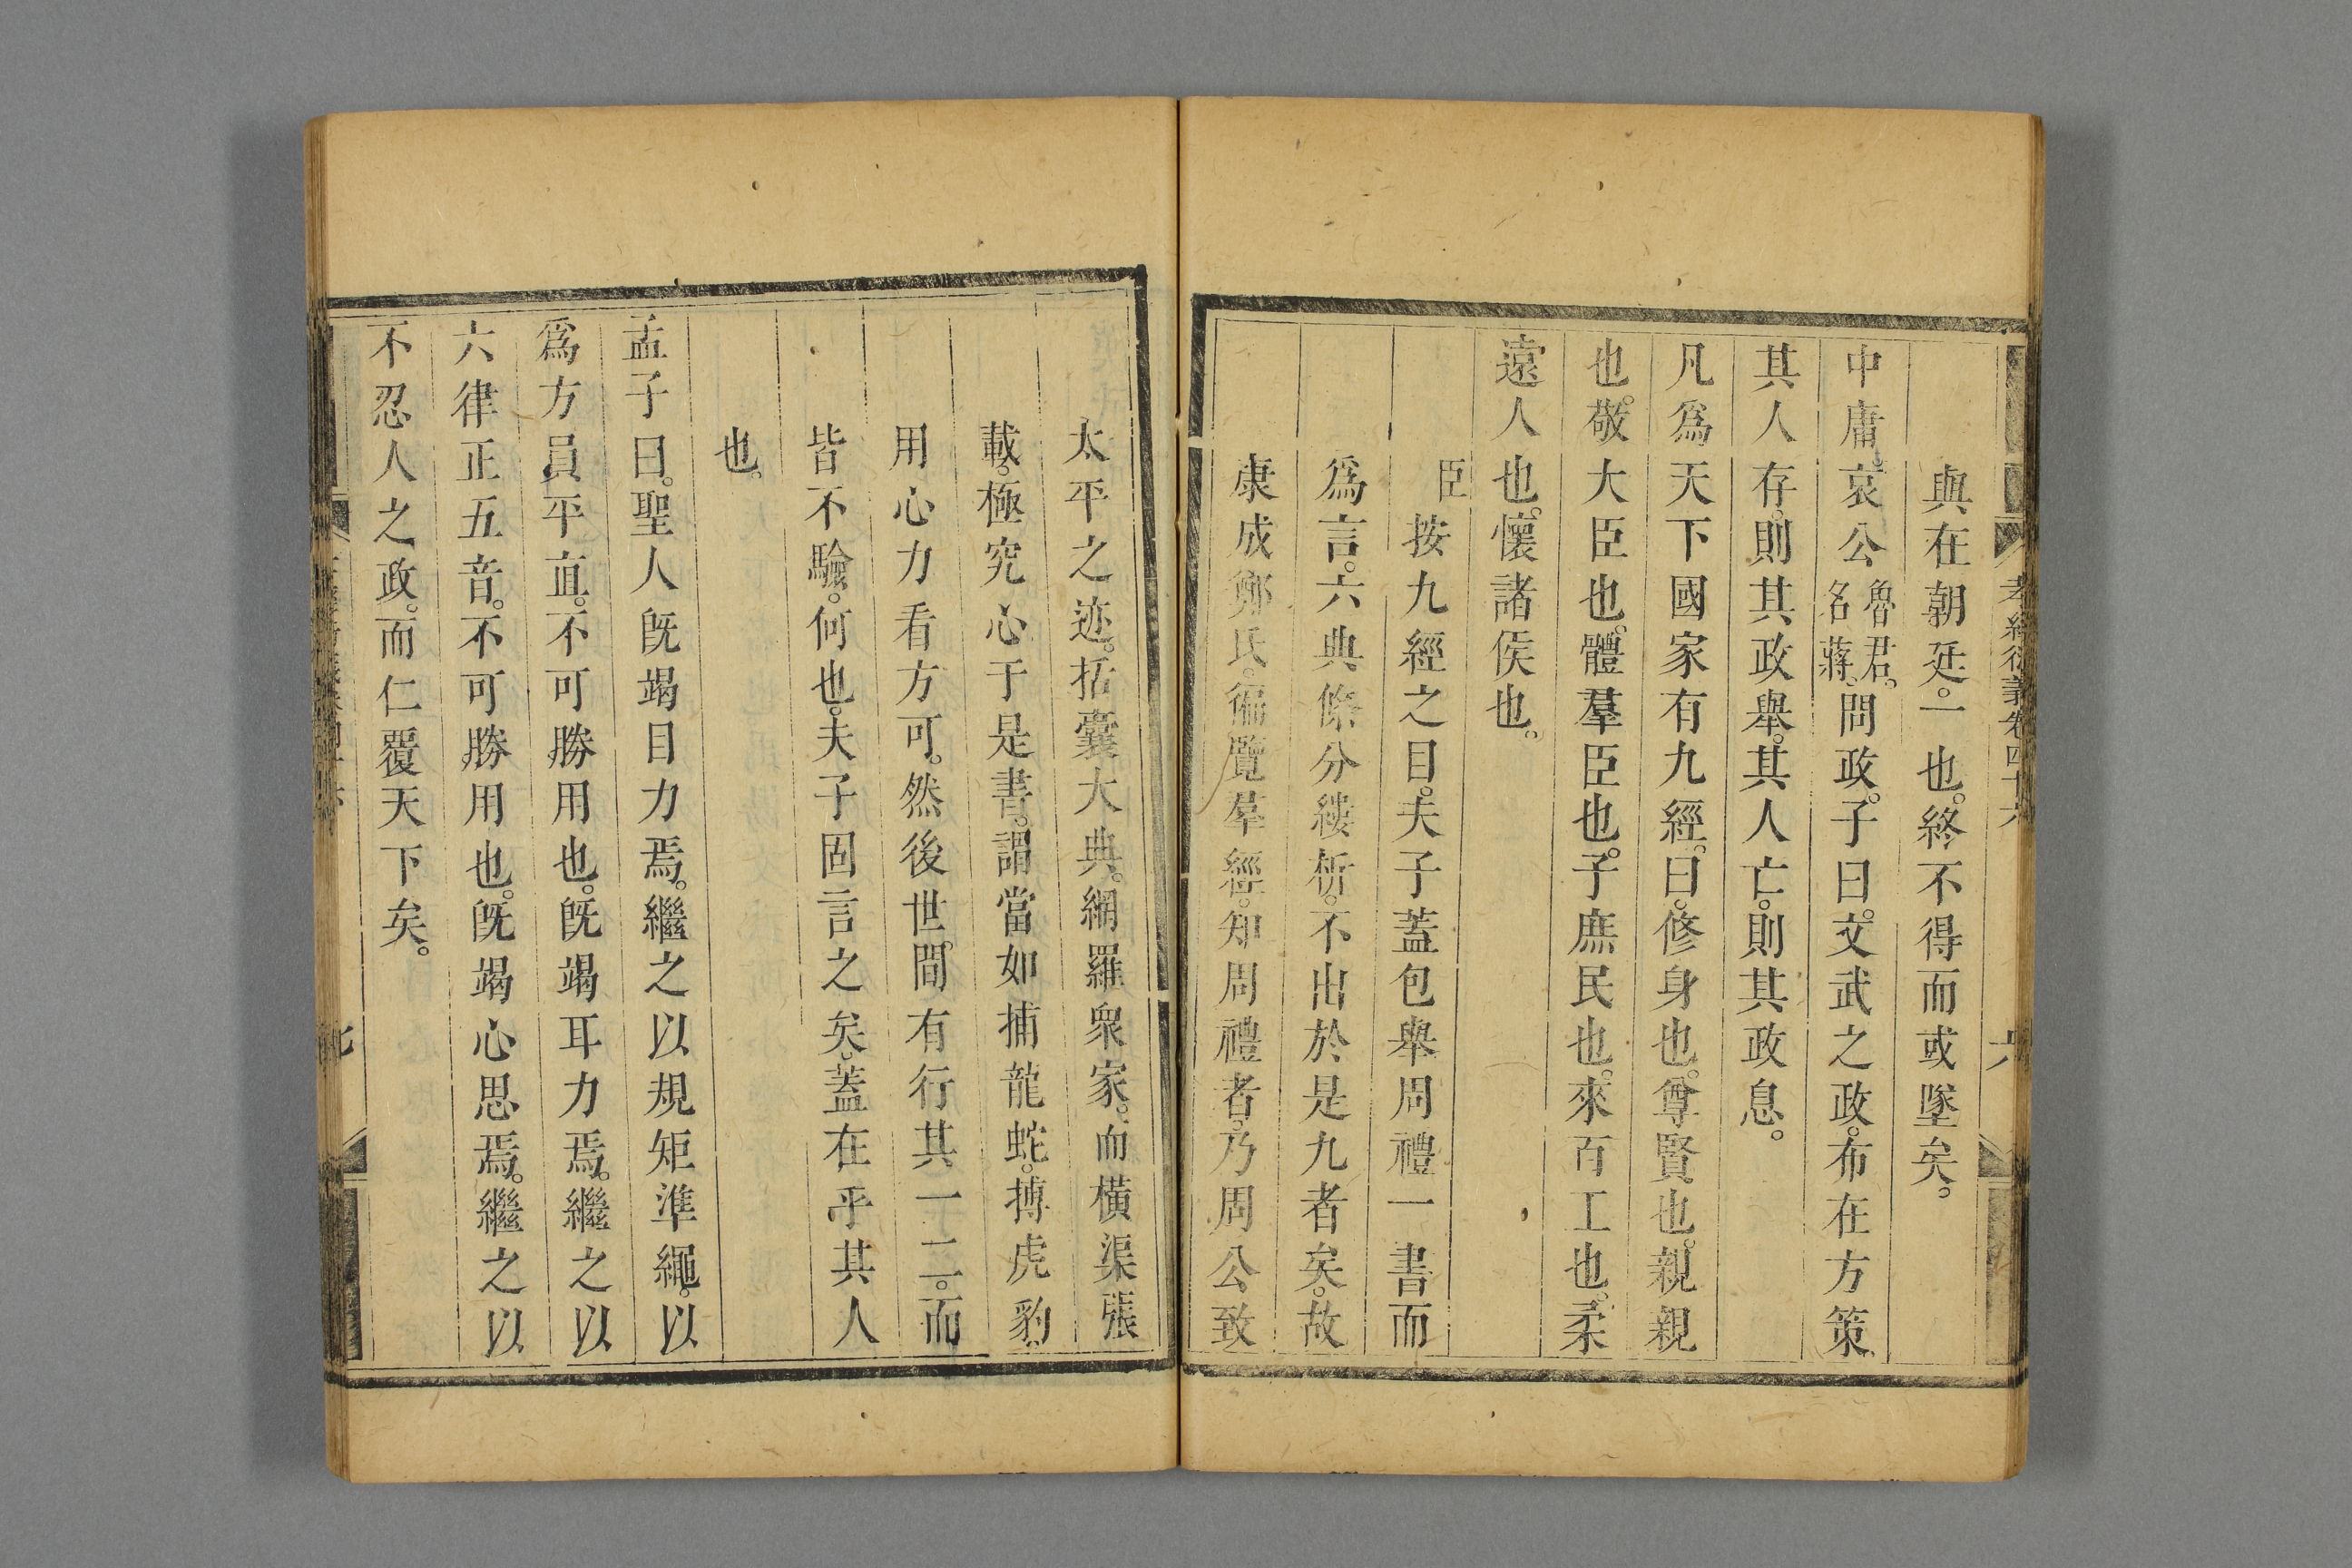 孝經衍義卷四十六
六
與在朝廷。一也。終不得而或墜矣。
中庸。哀公魯君。名蔣、問政。子曰。文武之政。布在方策
其人存。則其政舉。其人亡。則其政息。
凡爲天下國家有九經。曰。修身也。尊賢也。親親
也。敬大臣也。體羣臣也。子庶民也。來百工也。柔
遠人也。懷諸侯也。
臣按九經之目。夫子蓋包舉周禮一書而
爲言。六典條分縷析。不出於是九者矣。故
康成鄭氏。徧覽羣經。知周禮者。乃周公致
太平之迹。括囊大典。網羅衆家。而橫渠張
載。極究心于是書。謂當如捕龍蛇。搏虎豹。
用心力看方可。然後世間有行其一二。而
皆不驗。何也。夫子固言之矣。蓋在乎其人
也。
孟子曰。聖人旣竭目力焉。繼之以規矩準繩。以
爲方員平直。不可勝用也。旣竭耳力焉。繼之以
六律正五音。不可勝用也。旣竭心思焉。繼之以
不忍人之政。而仁覆天下矣。